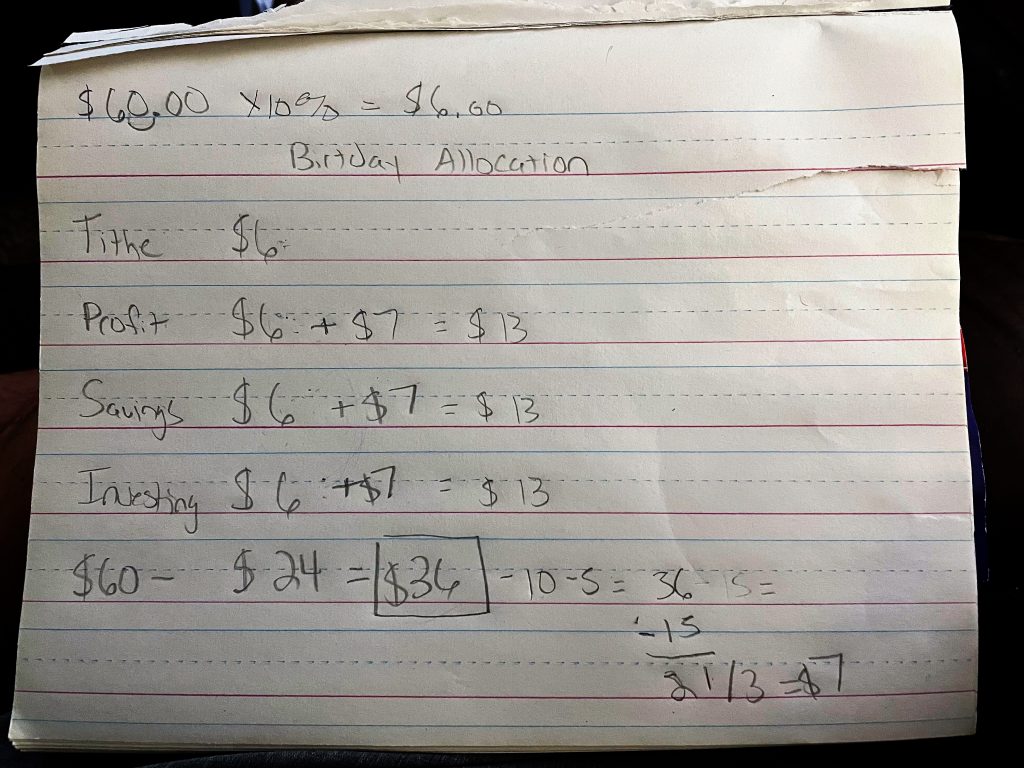 $60.00 x10% = $6.00
Birtday Allocation
Tithe $6
Profit $6 + $7 = $13
Savings $6 + $7 = $13
Investing $6 + $7 = $13
$60 - $24 = $36 - 10 - 5 = 36 - 15 =
- 15
21/3 = $7